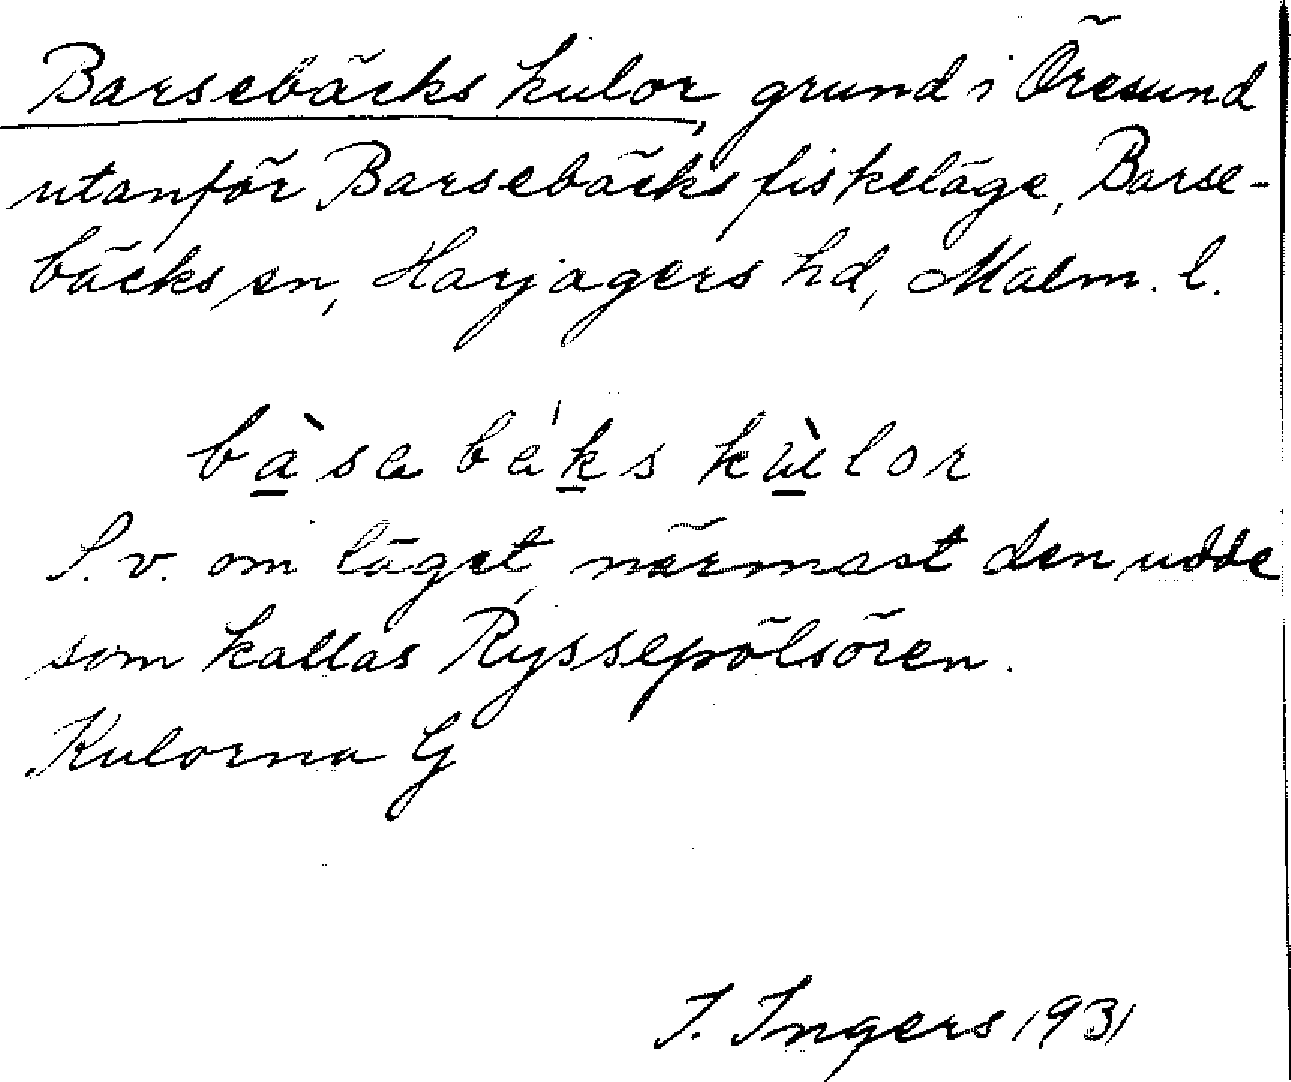 Barsebäcks kulor, grund i Öresund
utanför Barsebäcks fiskeläge, Barse-
bäcks sn, Harjagers hd, Malm. l.
bàsabáks kùlor
S.v. om läget, närmast den udde
som kallas Ryssepölsören.
Kulorna G
I. Ingers 1931